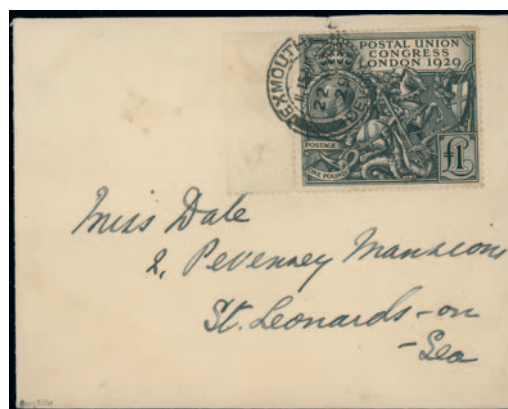 EXMOUTH
DEV
11.15 AM
22
POSTAL UNION
CONGRESS
LONDON 1929
POSTAGE
ONE POUND
£1
Miss Dale
2, Pevensey Mansions
St. Leonards-on
-Sea